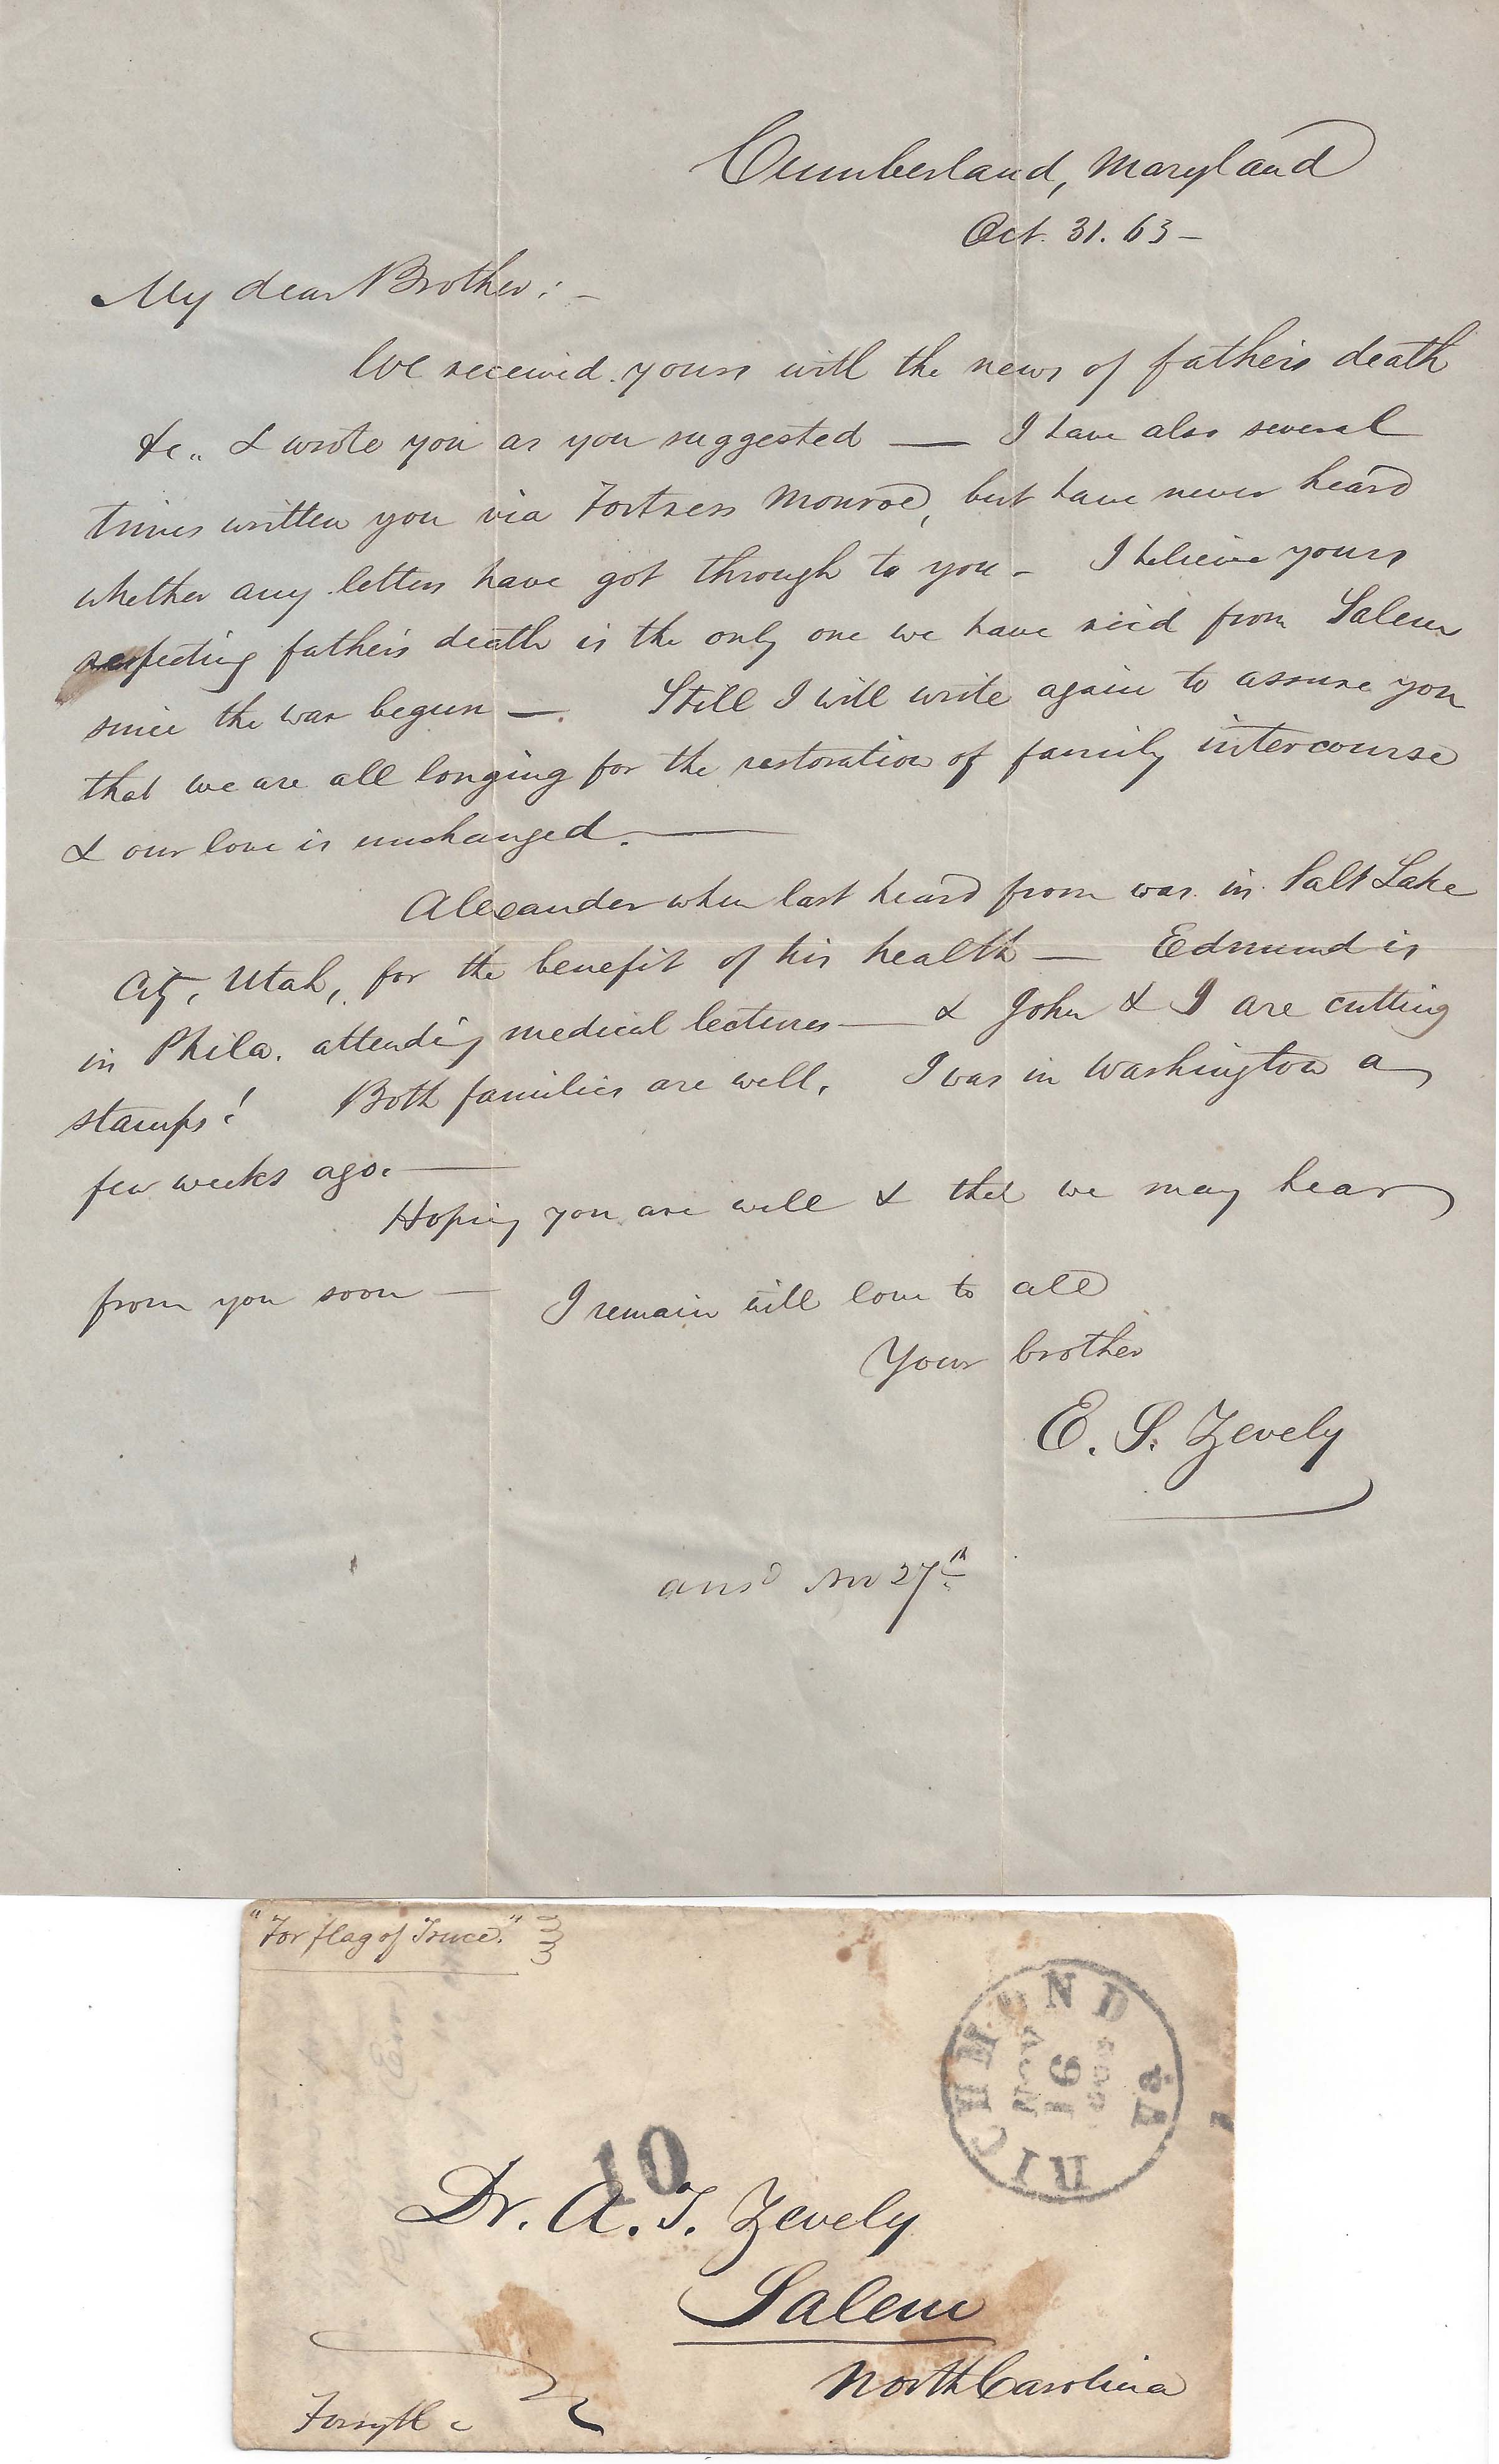 Cumberland, Maryland
Oct. 31. 63 —
My dear Brother: —
We received yours with the news of father's death
&c.. & wrote you as you suggested — I have also several
times written you via Fortress Monroe, but have never heard
whether any letters have got through to you — I believe yours
respecting father's death is the only one we have rec'd from Salem
since the war begun —. Still I will write again to assure you
that we are all longing for the restoration of family intercourse
& our love is unchanged. —
Alexander when last heard from was in Salt Lake
City, Utah, for the benefit of his health — Edmund is
in Phila. attending medical lectures — & John & I are cutting
stamps! Both families are well. I was in Washington a
few weeks ago. —
Hoping you are well & that we may hear
from you soon — I remain with love to all
Your brother
E. S. Zevely
ans'd Nov 27th
"For flag of Truce."
RICHMOND Va.
NOV
16
1863
10
Dr. A. T. Zevely
Salem
North Carolina
Forsyth c